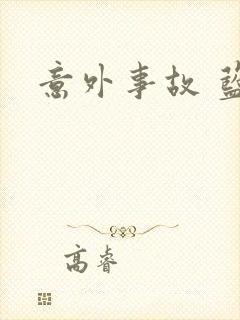 意外事故
高睿